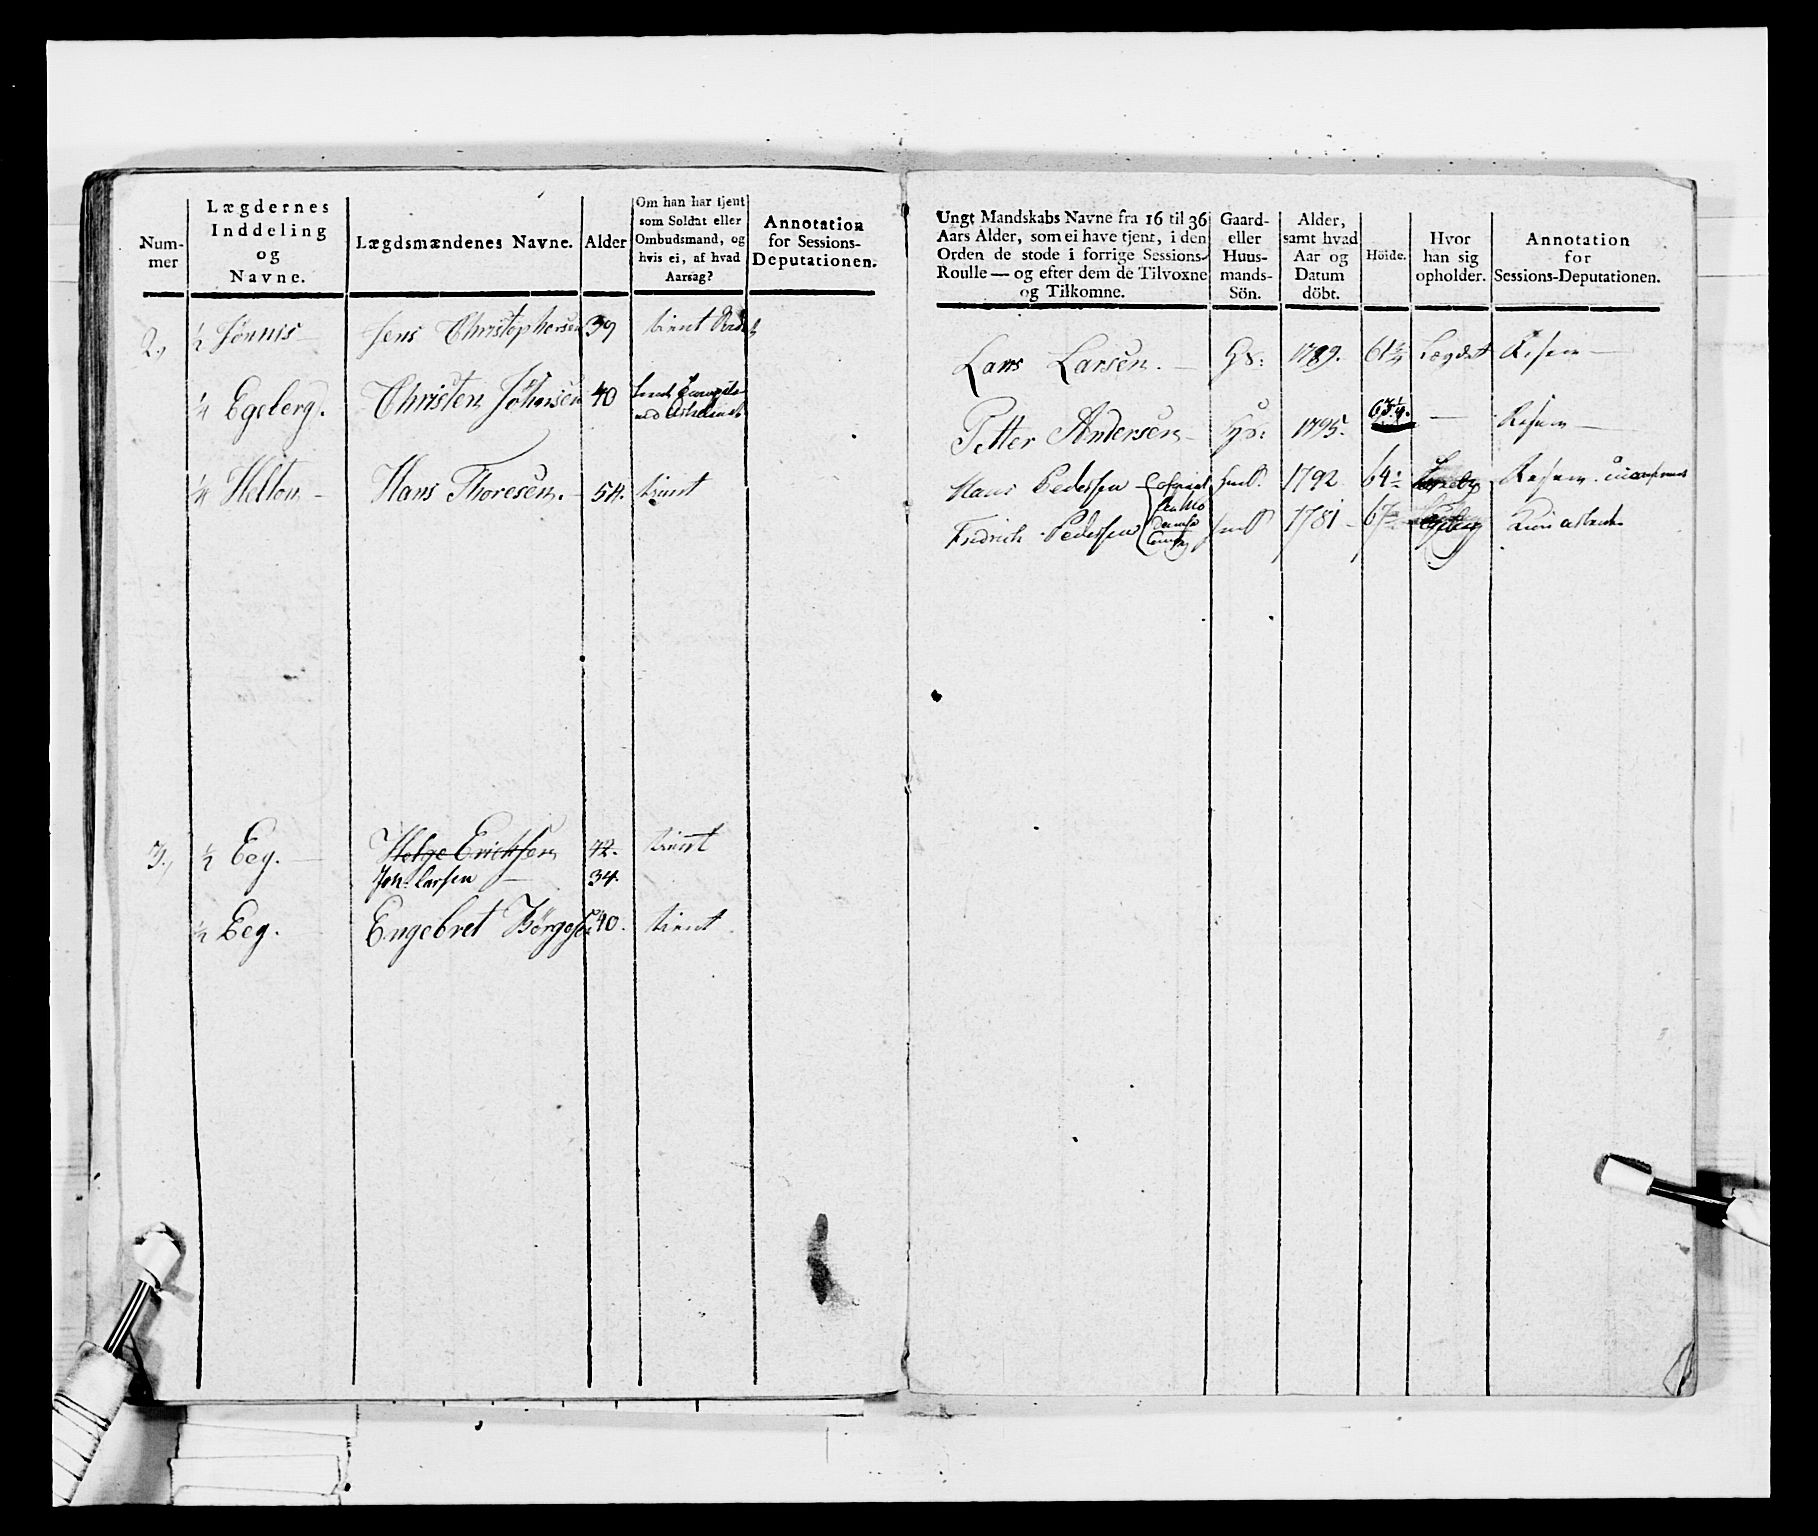 Num-
mer
Lægdernes
Inddeling
og
Navne.
Lægdsmændenes Navne.
Alder
Om han har tjent
som Soldat eller
Ombudsmand, og
hvis ei, af hvad
Aarsag?
Annotation
for Sessions-
Deputationen.
2., ½ Jønnis Jens Christophersen 39 tient
¼ Egeberg. Christen Johansen 40
¼ Helton Hans Thoresen. 54. tient
3., ½ Eeg. Helge Ericksen 42. tient
Joh: Larsen 34.
½ Eeg. Engebret Børgesen 40. tient
Ungt Mandskabs Navne fra 16 til 36
Aars Alder, som ei have tjent, i den
Orden de stode i forrige Sessions-
Roulle — og efter dem de Tilvoxne
og Tilkomne.
Gaard-
eller
Huus-
mands-
Sön.
Alder,
samt hvad
Aar og
Datum
döbt.
Höide.
Hvor
han sig
opholder.
Annotation
for
Sessions-Deputationen.
Lars Larsen. 1789. 61¾ Lægdet
Petter Andersen 1795.
Hans Pedersen 1792 64½
Fredrich Pedersen 1781 67